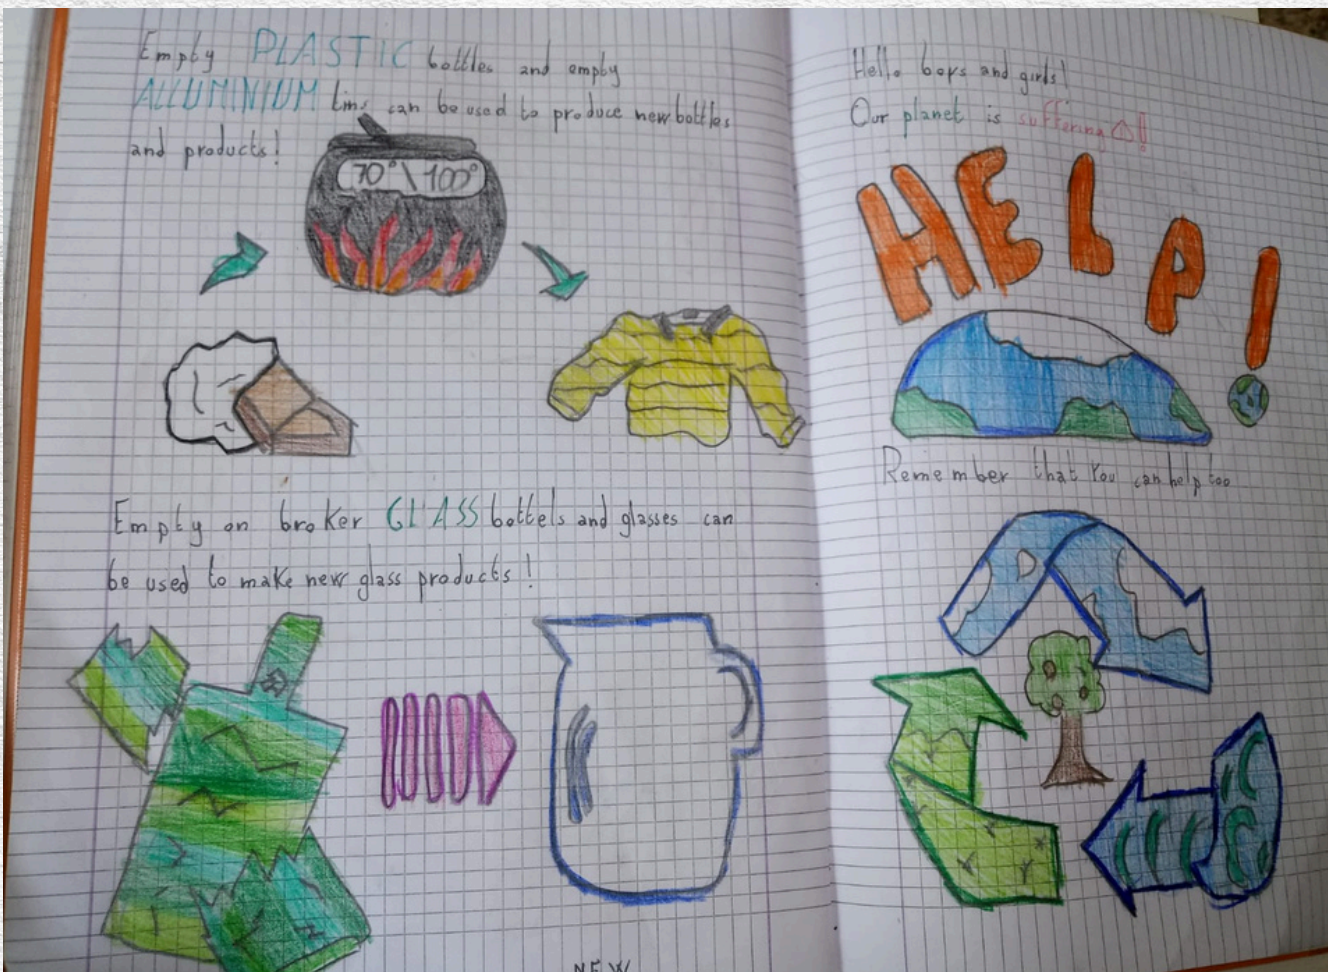 Empty PLASTIC bottles and empty
ALLUMINIUM tins can be used to produce new bottles
and products!
70° \ 100°
Empty on broker GLASS bottels and glasses can
be used to make new glass products!
NEW
Hello boys and girls!
Our planet is suffering !
HELP!
Remember that You can help too